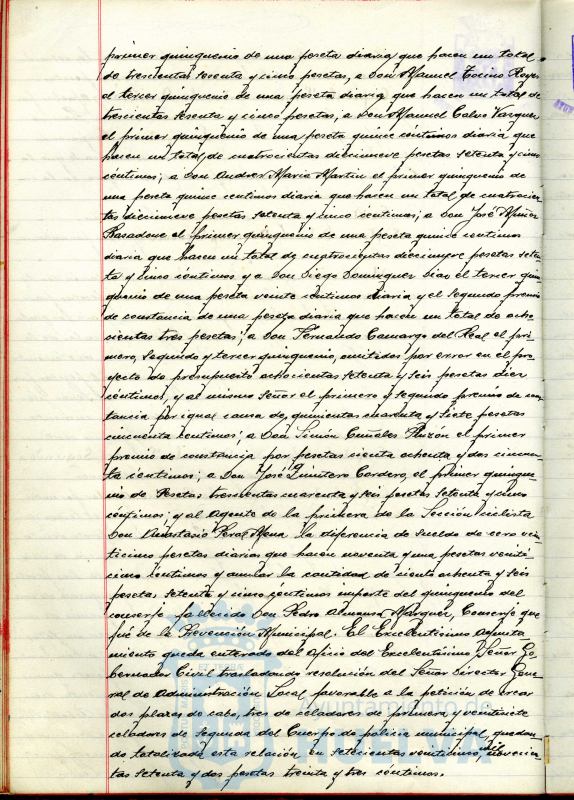 primer quinquenio de una peseta diaria que hacen un total
de trescientas sesenta y cinco pesetas, a Don Manuel Tocino Reyes
el tercer quinquenio de una peseta diaria que hacen un total de
trescientas sesenta y cinco pesetas, a Don Manuel Calvo Vazquez
el primer quinquenio de una peseta quince céntimos diaria que
hacen un total de cuatrocientas diecinueve pesetas setenta y cinco
céntimos; a Don Andres Maria Martin el primer quinquenio de
una peseta quince centimos diaria que hacen un total de cuatrocien-
tas diecinueve pesetas setenta y cinco céntimos; a Don José Muñoz
el primer quinquenio de una peseta quince centimos
diaria que hacen un total de cuatrocientas diecinueve pesetas seten-
ta y cinco céntimos y a Don Diego Dominguez Dias el tercer quin-
quenio de una peseta veinte céntimos diaria y el segundo premio
de constancia de una peseta diaria que hacen un total de ocho-
cientas tres pesetas; a Don Fernando Camargo del Real el pri-
mero, segundo y tercer quinquenio, omitidos por error en el pro-
yecto de presupuesto ochocientas setenta y seis pesetas diez
céntimos, y al mismo Señor el primero y segundo premio de cons-
tancia por igual causa de, quinientas cuarenta y siete pesetas
cincuenta centimos; a Don Simón Cruzón el primer
premio de constancia por pesetas ciento ochenta y dos cincuen-
ta céntimos; a Don José Quintero Cordero, el primer quinque-
nio de Pesetas trescientas cuarenta y seis pesetas setenta y cinco
céntimos; y al Agente de la primera de la Sección ciclista
Don Anastasio Peral Mena la diferencia de sueldo de cero vein-
ticinco pesetas diarias que hacen noventa y una pesetas venti-
cinco céntimos y anular la cantidad de ciento ochenta y seis
pesetas setenta y cinco céntimos importe del quinquenio del
conserje fallecido Don Pedro Almansa Marquez, Conserje que
fué de la Prevención Municipal. El Excelentísimo Ayunta-
miento queda enterado del Oficio del Excelentísimo Señor Go-
bernador Civil trasladando resolución del Señor Director Gene-
ral de Administración Local favorable a la petición de crear
dos plazas de cabo, tres de celadores de primera y veintisiete
celadores de segunda del Cuerpo de policia municipal, quedan-
do totalizada esta relación en setecientas veinticinco mil novecien-
tas setenta y dos pesetas treinta y tres céntimos.
Ayuntamiento de